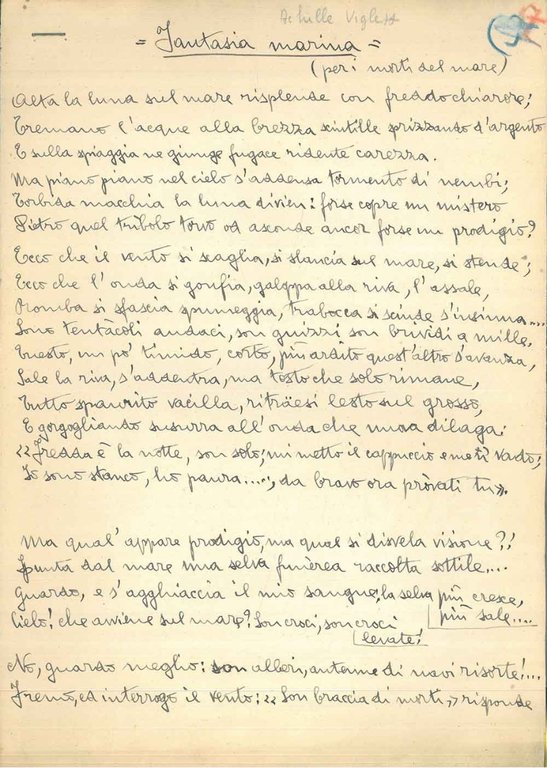 Achille
= Fantasia marina =
(per i morti del mare)
Alta la luna sul mare risplende con freddo chiarore;
Tremano l'acque alla brezza scintille sprizzando d'argento
E sulla spiaggia ne giunge fugace ridente carezza.
Ma piano piano nel cielo s'addensa tormento di nembi;
Torbida macchia la luna divien: forse copre un mistero
Dietro quel tribolo torvo od asconde ancor forse un prodigio?
Ecco che il vento si scaglia, si slancia sul mare, si stende;
Ecco che l'onda si gonfia, galoppa alla riva, l'assale,
Romba si sfascia spumeggia, trabocca si scinde s'insinua....
Sono tentacoli audaci, son guizzi son brividi a mille.
Questo, un po' timido, corto, più ardito quest'altro s'avanza,
Sale la riva, s'addentra, ma tosto che solo rimane,
Tutto spaurito vacilla, riträesi lesto sul grosso,
E gorgogliando susurra all'onda che nuova dilaga:
«Fredda è la notte, son solo; mi metto il cappuccio e me ti vado;
Io sono stanco, ho paura....., da bravo ora pròvati tu».
Ma qual' appare prodigio, ma qual si disvela visione?!
Spunta dal mare una selva funèrea raccolta sottile....
Guardo, e s'agghiaccia il mio sangue; la selva più cresce,
più sale....
Cielo! che avviene sul mare? Son croci, son croci
levate!
No, guardo meglio: son alberi, antenne di navi risorte!....
Fremo, ed interrogo il vento: «Son braccia di morti» risponde